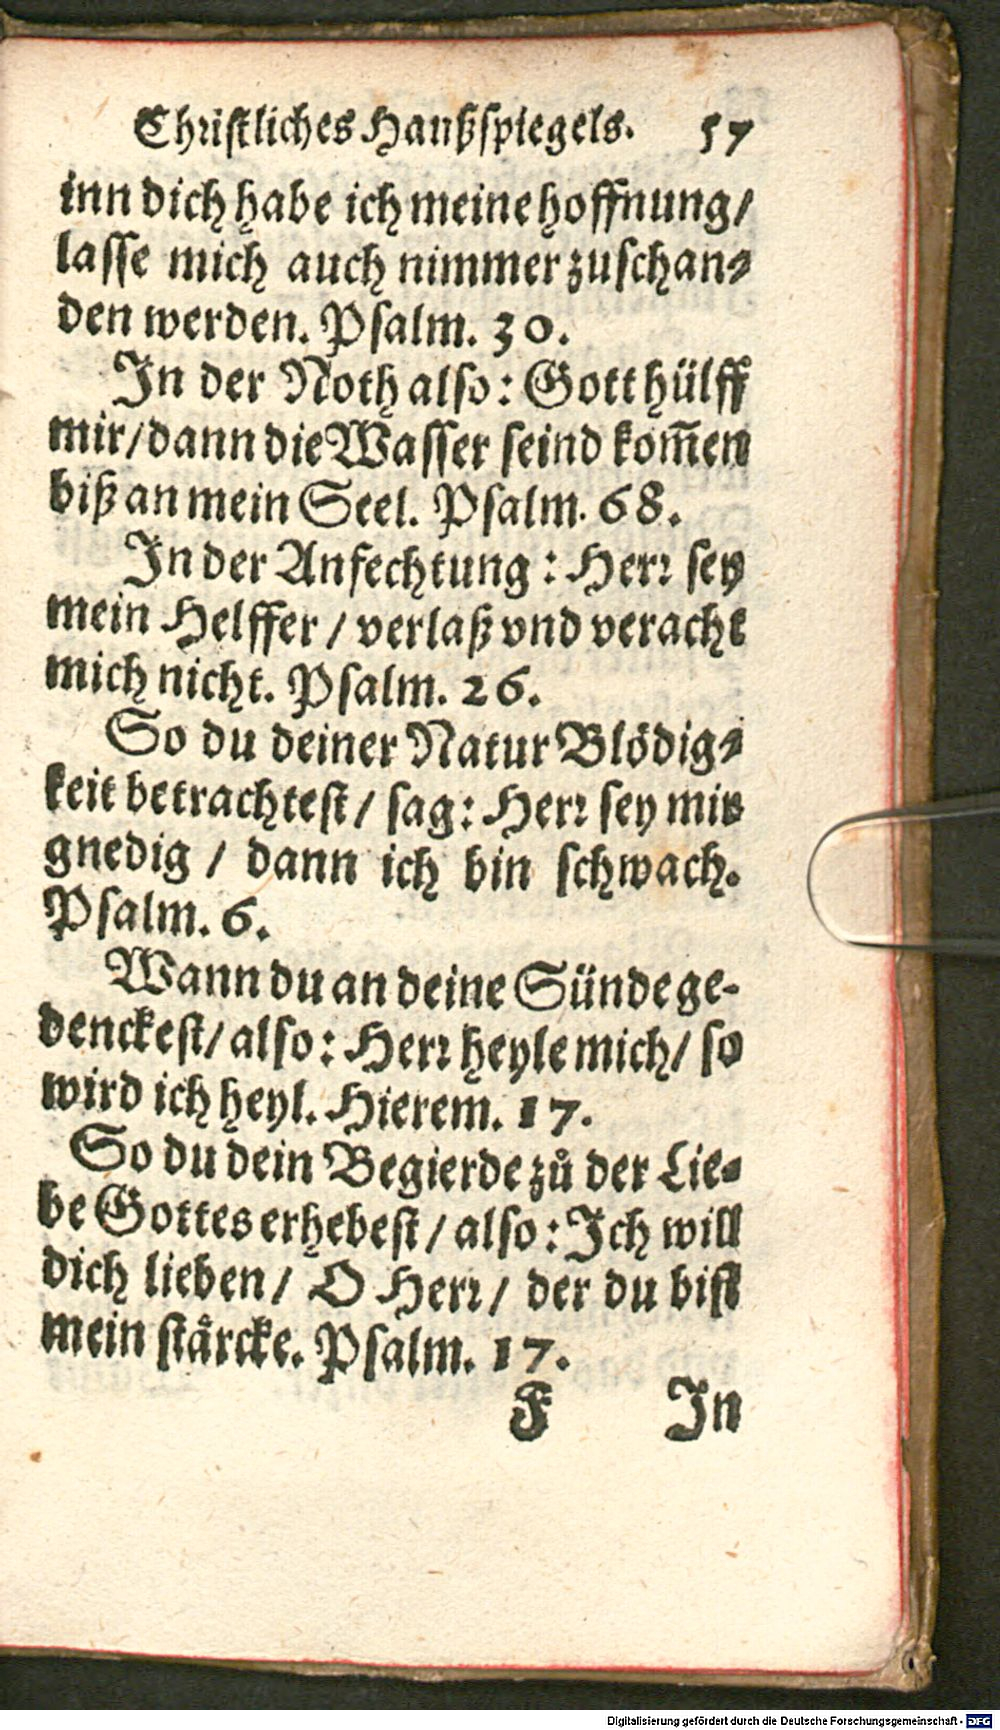 Christliches Haußspiegels. 57
inn dich habe ich meine hoffnung/
lasse mich auch nimmer zuschan⸗
den werden. Psalm. 30.
In der Noth also: Gott hülff
mir/dann die Wasser seind kom̄en
biß an mein Seel. Psalm. 68.
In der Anfechtung: Herr sey
mein Helffer / verlaß vnd veracht
mich nicht. Psalm. 26.
So du deiner Natur Blödig⸗
keit betrachtest / sag: Herr sey mir
gnedig / dann ich bin schwach.
Psalm. 6.
Wann du an deine Sünde ge-
denckest/ also: Herr heyle mich/ so
wird ich heyl. Hierem. 17.
So du dein Begierde zů der Lie⸗
be Gottes erhebest / also: Ich will
dich lieben/ O Herr/ der du bist
mein stårcke. Psalm. 17.
F In
Digitalisierung gefördert durch die Deutsche Forschungsgemeinschaft - DFG